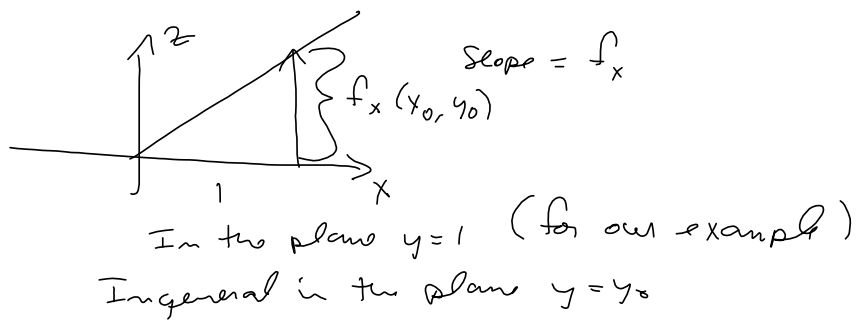 z
slope = f_x
f_x (x_0, y_0)
1
x
In the plane y=1 (for our example)
In general in the plane y = y_0